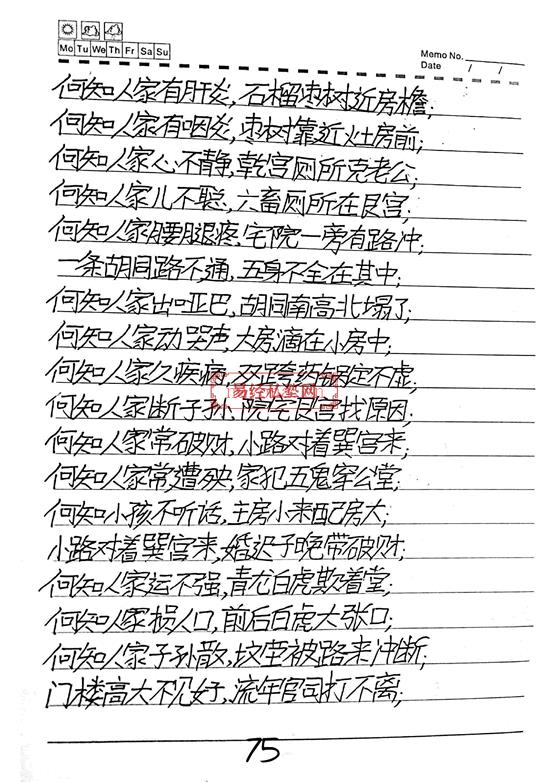 Mo Tu We Th Fr Sa Su
Memo No.
Date / /
何知人家有肝炎,石榴枣树近房檐;
何知人家有咽炎,枣树靠近灶房前;
何知人家心不静,乾宫厕所克老公;
何知人家儿不聪,六畜厕所在艮宫;
何知人家腰腿疼,宅院一旁有路冲;
一条胡同路不通,五身不全在其中;
何知人家出哑巴,胡同南高北塌了;
何知人家动哭声,大房滴在小房中;
何知人家久疾病,
定不虚;
易经私塾网
何知人家断子孙,院宅艮宫找原因;
何知人家常破财,小路对着巽宫来;
何知人家常遭殃,家犯五鬼穿公堂;
何知小孩不听话,主房小来配房大;
小路对着巽宫来,婚迟子晚带破财;
何知人家运不强,青龙白虎欺着堂;
何知人家损人口,前后白虎大张口;
何知人家子孙散,坟茔被路来冲断;
门楼高大不见好,流年官司打不离;
75